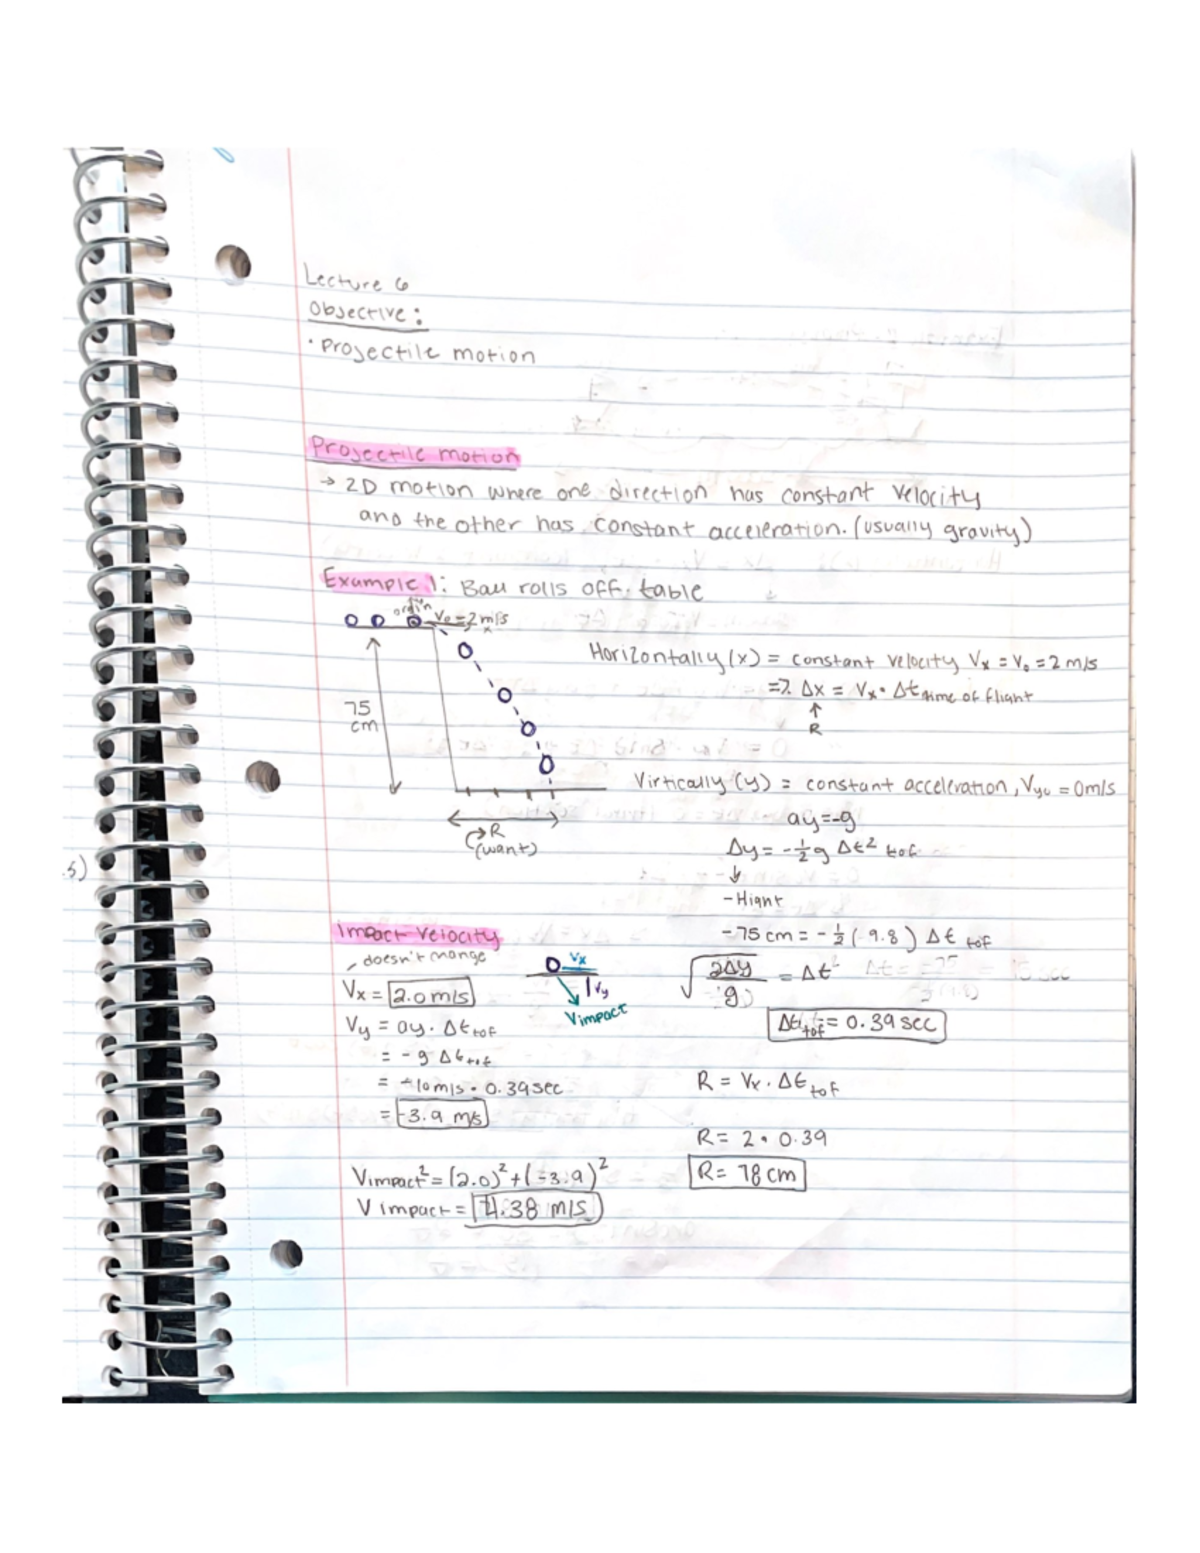 Lecture 6
Objective:
· Projectile motion
Projectile motion
→ 2D motion where one direction has constant velocity
and the other has constant acceleration. (usually gravity)
Example 1: Ball rolls off table
origin V₀ = 2 m/s
x
75
cm
R
(want)
Horizontally (x) = constant velocity Vx = V₀ = 2 m/s
=> Δx = Vx · Δt time of flight
↑
R
Virtically (y) = constant acceleration, Vy₀ = 0 m/s
ay = -g
Δy = -½ g Δt² tof
↓
- Hight
-75 cm = -½ (-9.8) Δt tof
√(2Δy / g) = Δt
Δt tof = 0.39 sec
R = Vx · Δt tof
R = 2 · 0.39
R = 78 cm
.5)
Impact Velocity
doesn't change
Vx = 2.0 m/s
Vy = ay · Δt tof
= - g Δt tof
= -10 m/s · 0.39 sec
= -3.9 m/s
Vx
Vy
Vimpact
Vimpact² = (2.0)² + (-3.9)²
V impact = 4.38 m/s